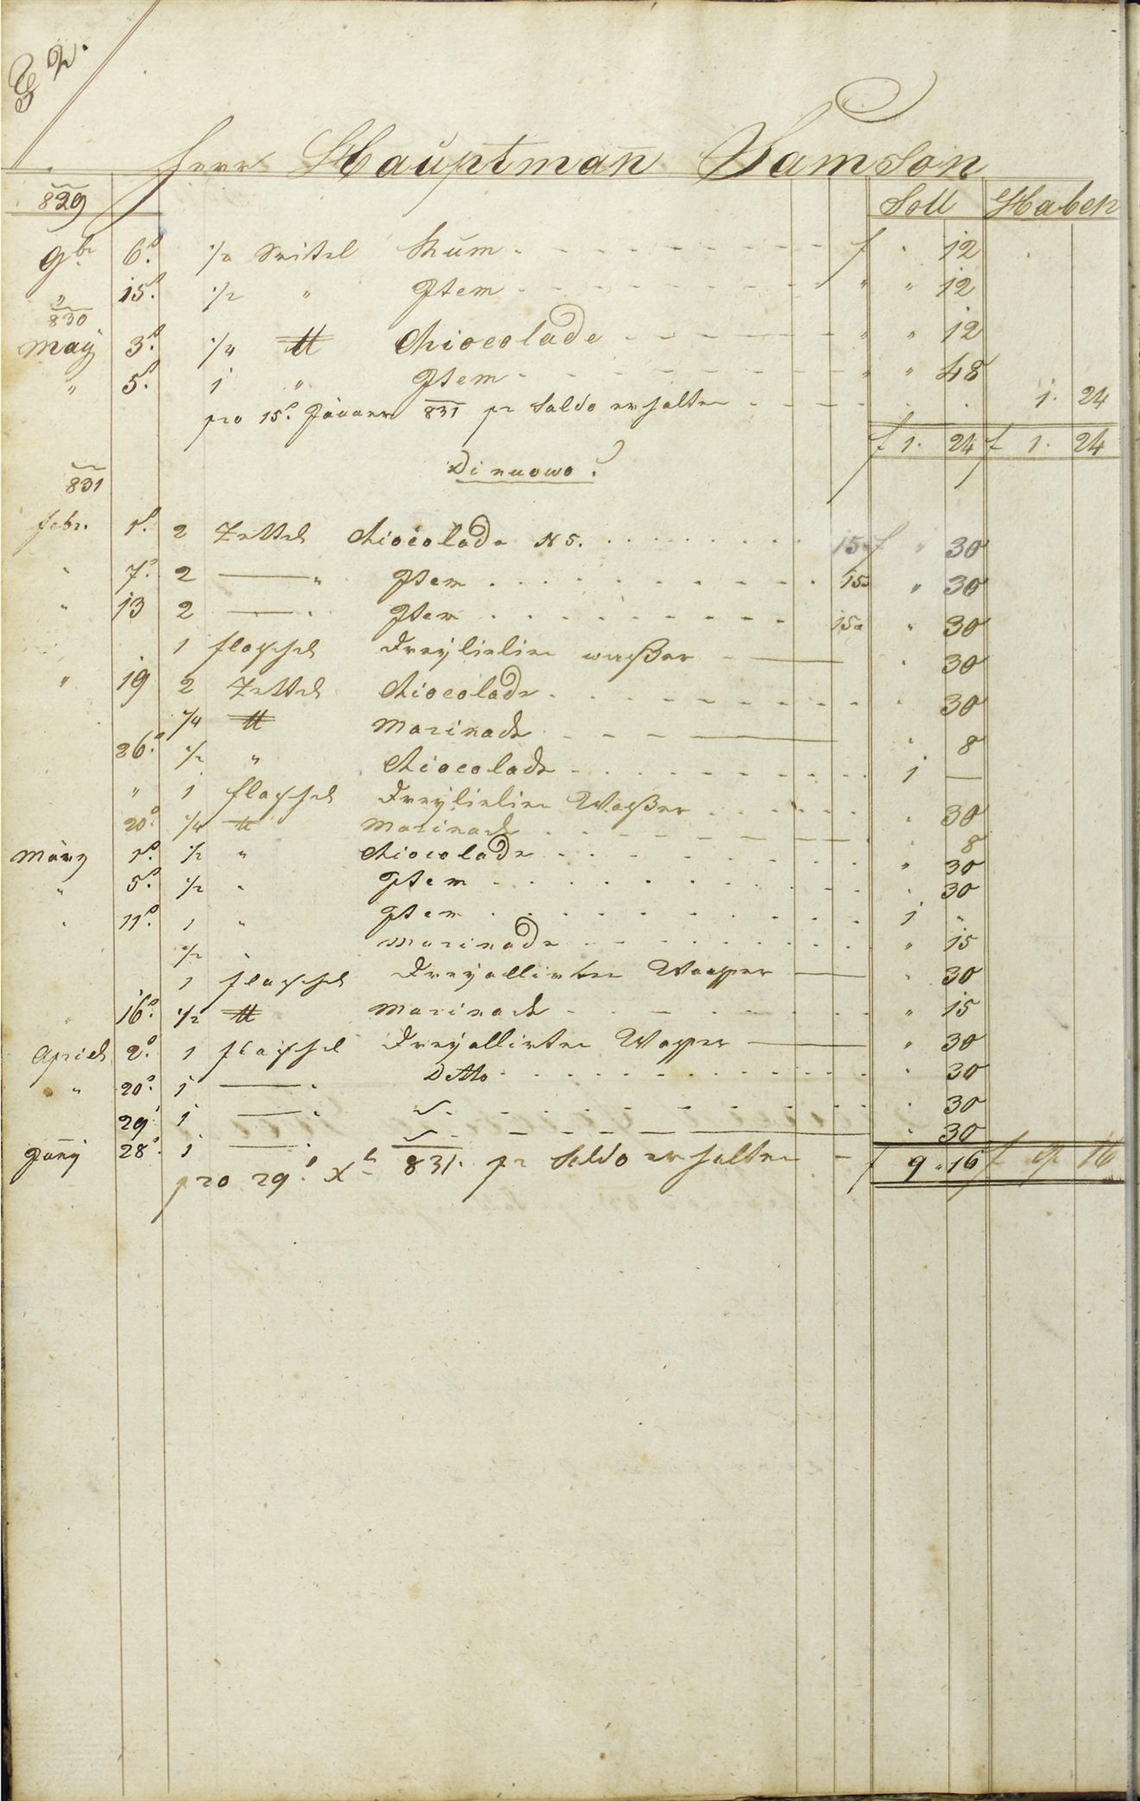 Herr Hauptman Samson
829 Soll Haben
9br 6. 1/2 Seitel Rum f " 12
" 15. 1/2 " Item " " 12
830
May 3. 1/4 ℔ Chiocolade " " 12
" 5. 1 " Item " " 48
pro 15. Jänner 831 pr Saldo erhalten 1. 24
f 1. 24 f 1. 24
Di nuovo.
831
Febr. 1. 2 Zettel Chiocolade N 5. 15 f " 30
" 7. 2 " Item 15 " 30
" 13 2 " Item 15 " 30
1 Flaschel wasser 30
" 19 2 Zettel Chiocolade 30
1/4 ℔ Marinade 8
26. 1/2 " Chiocolade 1 —
" 1 Flaschel Wasser 30
20. 1/4 ℔ Marinade 8
März 1. 1/2 " Chiocolade " 30
" 5. 1/2 " Item 30
" 11. 1 " Item 1 "
1/2 " Marinade " 15
1 Flaschel Wasser 30
16. 1/2 ℔ Marinade " 15
April 2. 1 Flaschel Wasser " 30
" 20. 1 " Detto 30
29 1 " 30
Juny 28. 1 " 30
pro 29. Xbr 831. pr Saldo erhalten f 9 " 16 f 9 16